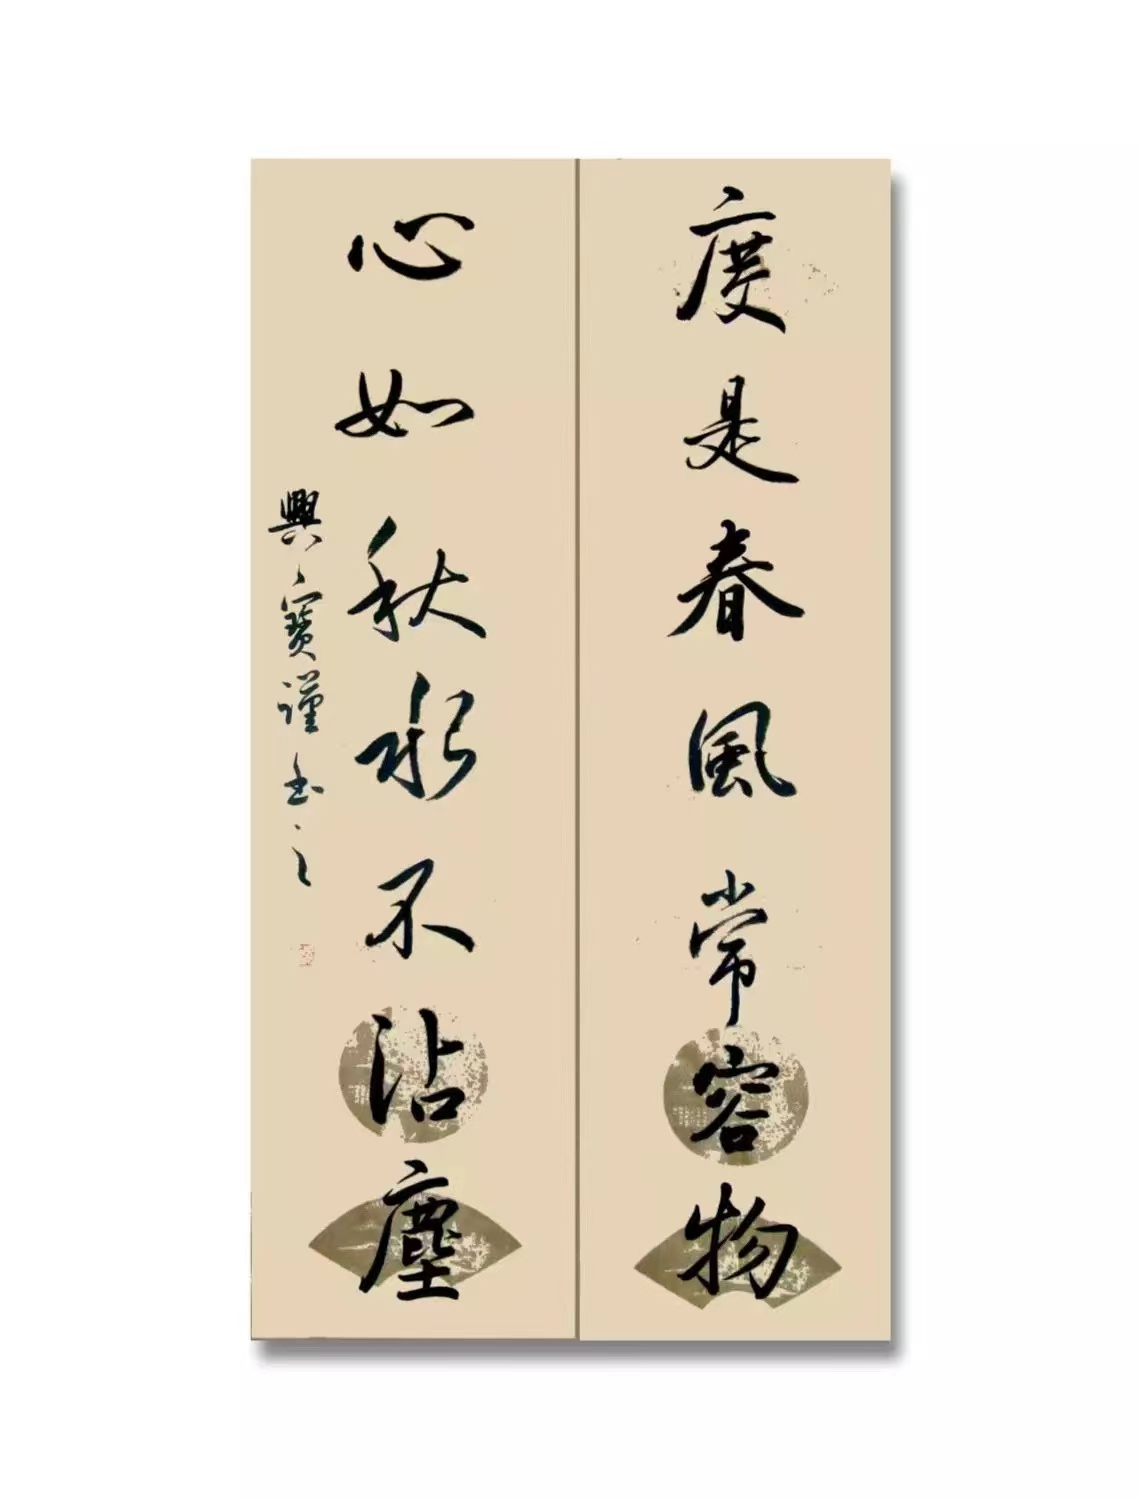 度是春風常容物
心如秋水不沾塵
興寶謹書之